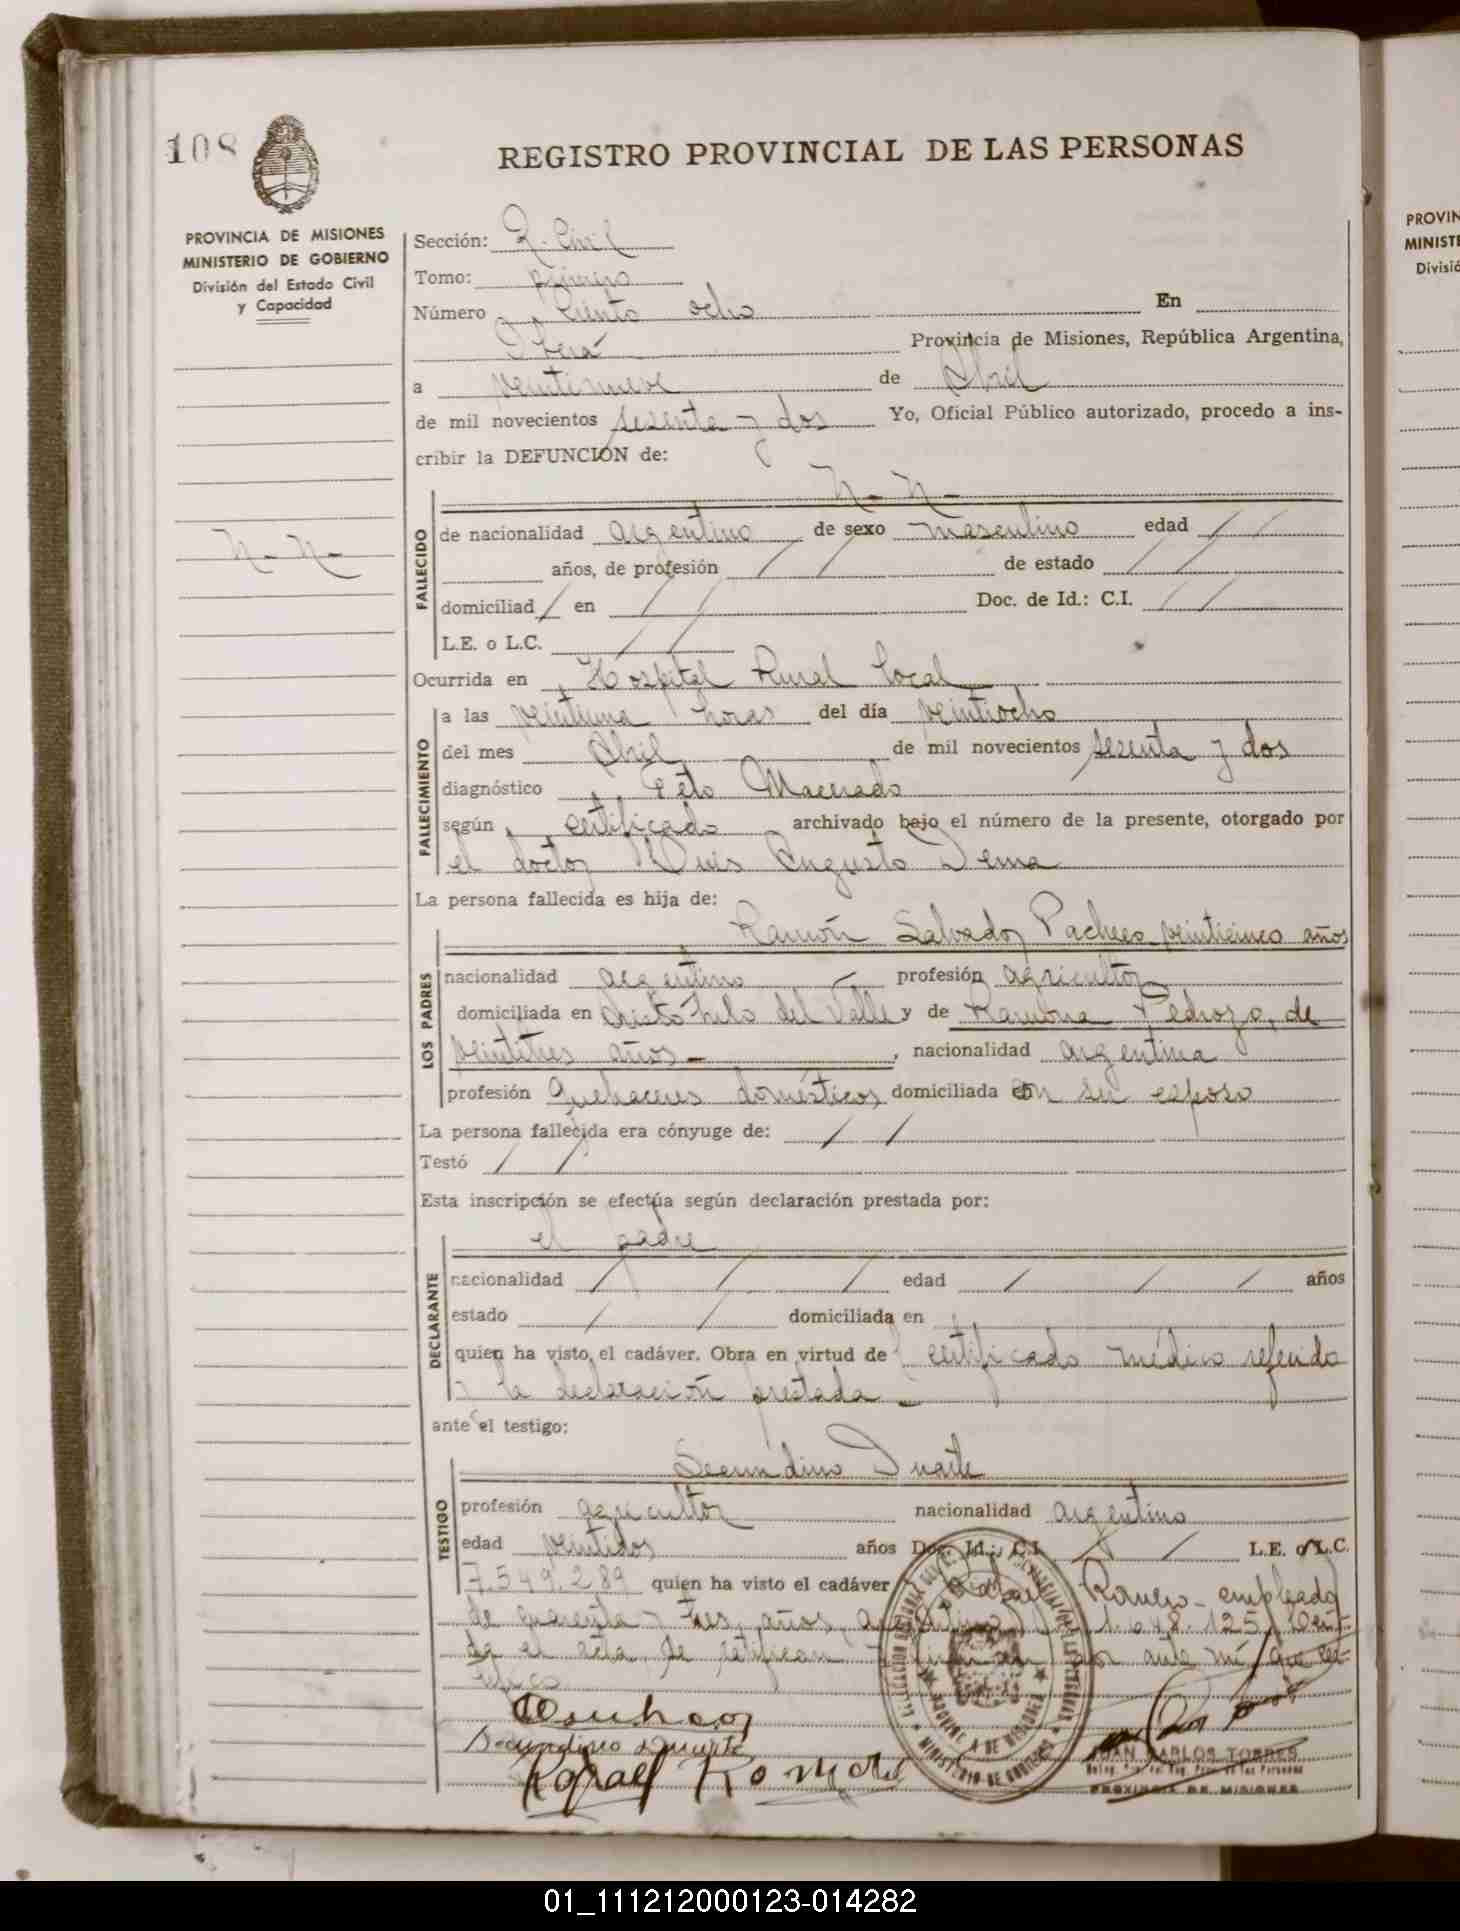 108
REGISTRO PROVINCIAL DE LAS PERSONAS
PROVINCIA DE MISIONES
MINISTERIO DE GOBIERNO
División del Estado Civil
y Capacidad
Sección: R. Civil
Tomo: primero
Número Ciento ocho En
Oberá Provincia de Misiones, República Argentina,
a veintinueve de Abril
de mil novecientos sesenta y dos Yo, Oficial Público autorizado, procedo a ins-
cribir la DEFUNCIÓN de:
N- N-
N- N-
FALLECIDO
de nacionalidad argentino de sexo masculino edad / /
años, de profesión / / de estado / /
domiciliad / en / / Doc. de Id.: C.I. / /
L.E. o L.C. / /
Ocurrida en Hospital Rural local
FALLECIMIENTO
a las veintiuna horas del día veintiocho
del mes Abril de mil novecientos sesenta y dos
diagnóstico Feto Macerado
según certificado archivado bajo el número de la presente, otorgado por
el doctor Luis Augusto Dema
La persona fallecida es hija de:
LOS PADRES
Ramón Salvador Pacheco veinticinco años
nacionalidad argentino profesión agricultor
domiciliada en del Valle y de Ramona Pedrozo, de
veintitres años - , nacionalidad argentina
profesión Quehaceres domésticos domiciliada con su esposo
La persona fallecida era cónyuge de: / /
Testó / /
Esta inscripción se efectúa según declaración prestada por:
DECLARANTE
el padre
nacionalidad / / / edad / / / años
estado / / domiciliada en
quien ha visto el cadáver. Obra en virtud de certificado médico referido
y la declaración prestada -
ante el testigo:
TESTIGO
Secundino Duarte
profesión agricultor nacionalidad argentino
edad veintidos años Doc. Id.: C.I. / / L.E. o L.C.
7.549.289 quien ha visto el cadáver empleado
de cuarenta y tres años, argentino 1.048.125
el acta, se ratifican ante mí, que cer-
tifico
Secundino Duarte
Rafael Romero
JUAN CARLOS TORRES
PROVINCIA DE MISIONES
MINISTERIO DE GOBIERNO
PROVINCIA DE MISIONES
PROVIN
MINISTE
Divisió
01_111212000123-014282